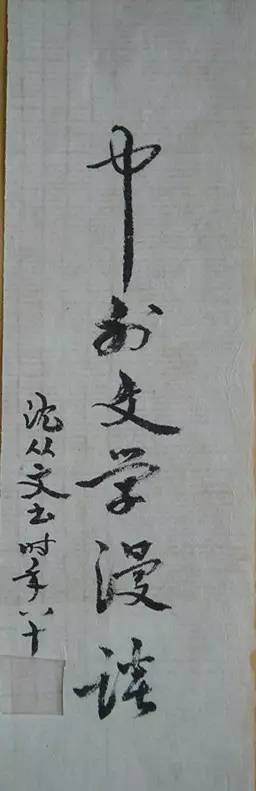 中外文学漫谈
沈从文书时年八十